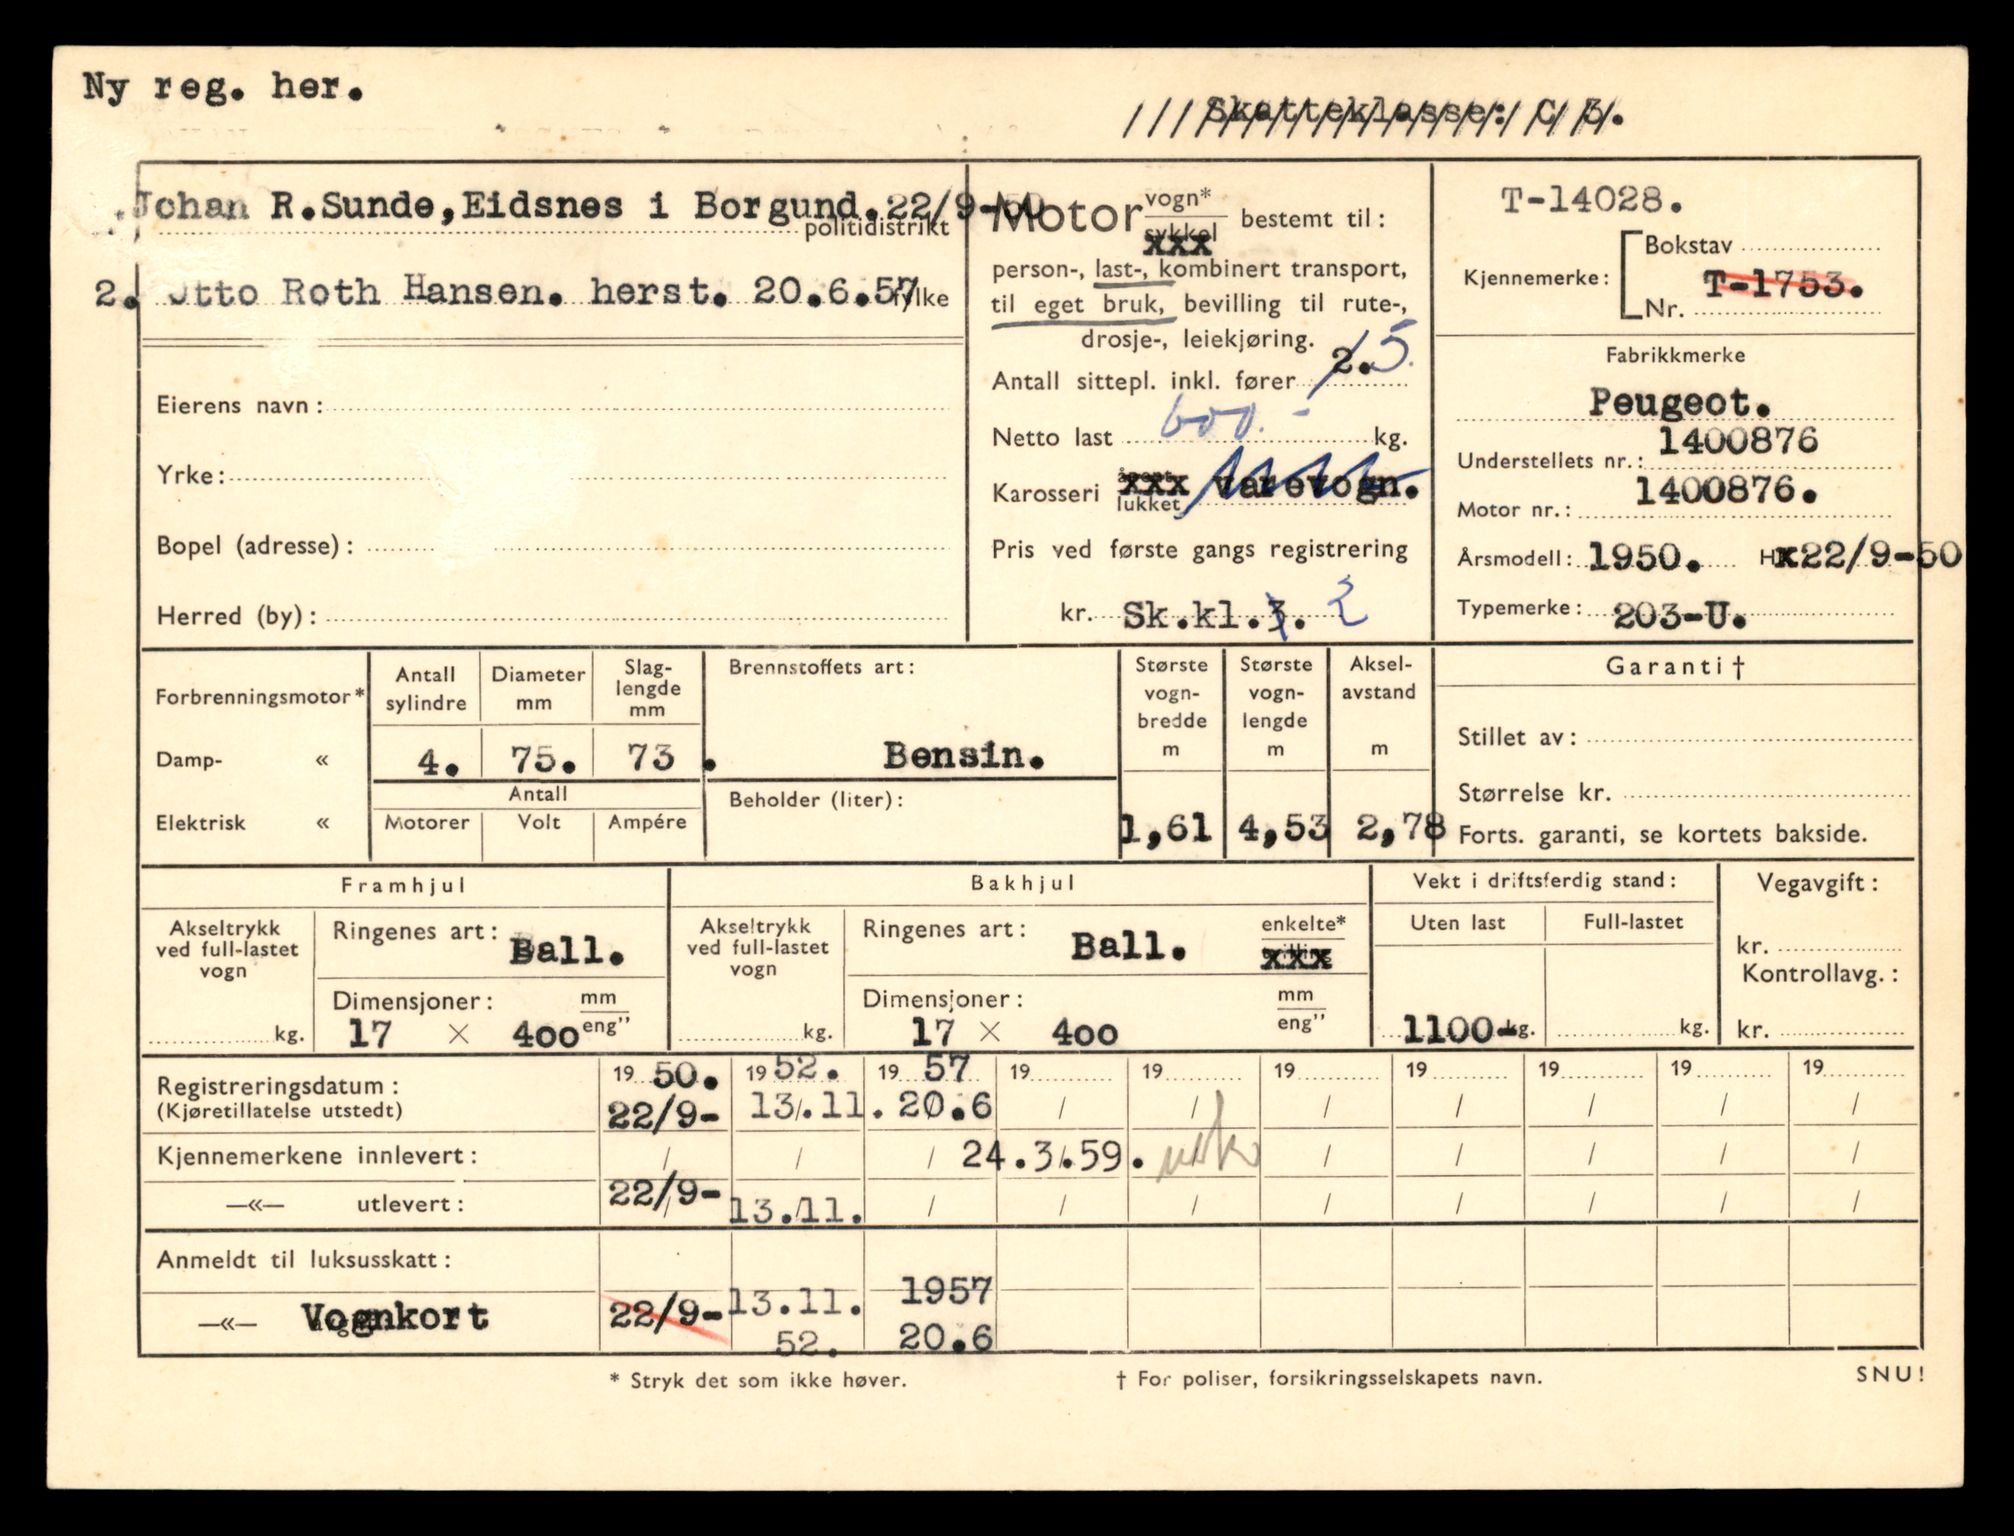 Ny reg. her.
Skatteklasse: C 3.
Johan R.Sunde,Eidsnes i Borgund.22/9-50
politidistrikt
2. Otto Roth Hansen. herst. 20.6.57
fylke
Eierens navn:
Yrke:
Bopel (adresse):
Herred (by):
Motor vogn*
sykkel
xxx
bestemt til:
person-, last-, kombinert transport,
til eget bruk, bevilling til rute-,
drosje-, leiekjøring.
Antall sittepl. inkl. fører 2. 5.
Netto last 600.- kg.
Karosseri åpent xxx varevogn.
lukket
Pris ved første gangs registrering
kr. Sk.kl.3. 2
T-14028.
Kjennemerke: Bokstav
T-1753.
Nr.
Fabrikkmerke
Peugeot.
1400876
Understellets nr.:
1400876.
Motor nr.:
Årsmodell: 1950. Hx22/9-50
Typemerke: 203-U.
Forbrenningsmotor*
Damp- «
Elektrisk «
Antall sylindre
Diameter mm
Slag-lengde mm
4. 75. 73.
Antall
Motorer Volt Ampére
Brennstoffets art:
Bensin.
Beholder (liter):
Største vogn-bredde m
Største vogn-lengde m
Aksel-avstand m
1,61 4,53 2,78
Garanti†
Stillet av:
Størrelse kr.
Forts. garanti, se kortets bakside.
Framhjul
Akseltrykk ved full-lastet vogn
kg.
Ringenes art: Ball.
Dimensjoner: mm
17 × 400 eng”
Bakhjul
Akseltrykk ved full-lastet vogn
kg.
Ringenes art: Ball. enkelte*
xxx
Dimensjoner: mm
17 × 400 eng”
Vekt i driftsferdig stand:
Uten last Full-lastet
1100- kg. kg.
Vegavgift:
kr.
Kontrollavg.:
kr.
Registreringsdatum: 19 50. 19 52. 19 57 19 19 19 19 19 19 19
(Kjøretillatelse utstedt) 22/9- 13/.11. 20.6 / / / / / / /
Kjennemerkene innlevert: / / / 24.3/.59. / / / / /
—«— utlevert: 22/9- 13./11. / / / / / / / /
Anmeldt til luksusskatt:
—«— Vognkort 22/9- 13.11. 1957
52. 20.6
* Stryk det som ikke høver.
† For poliser, forsikringsselskapets navn.
SNU!